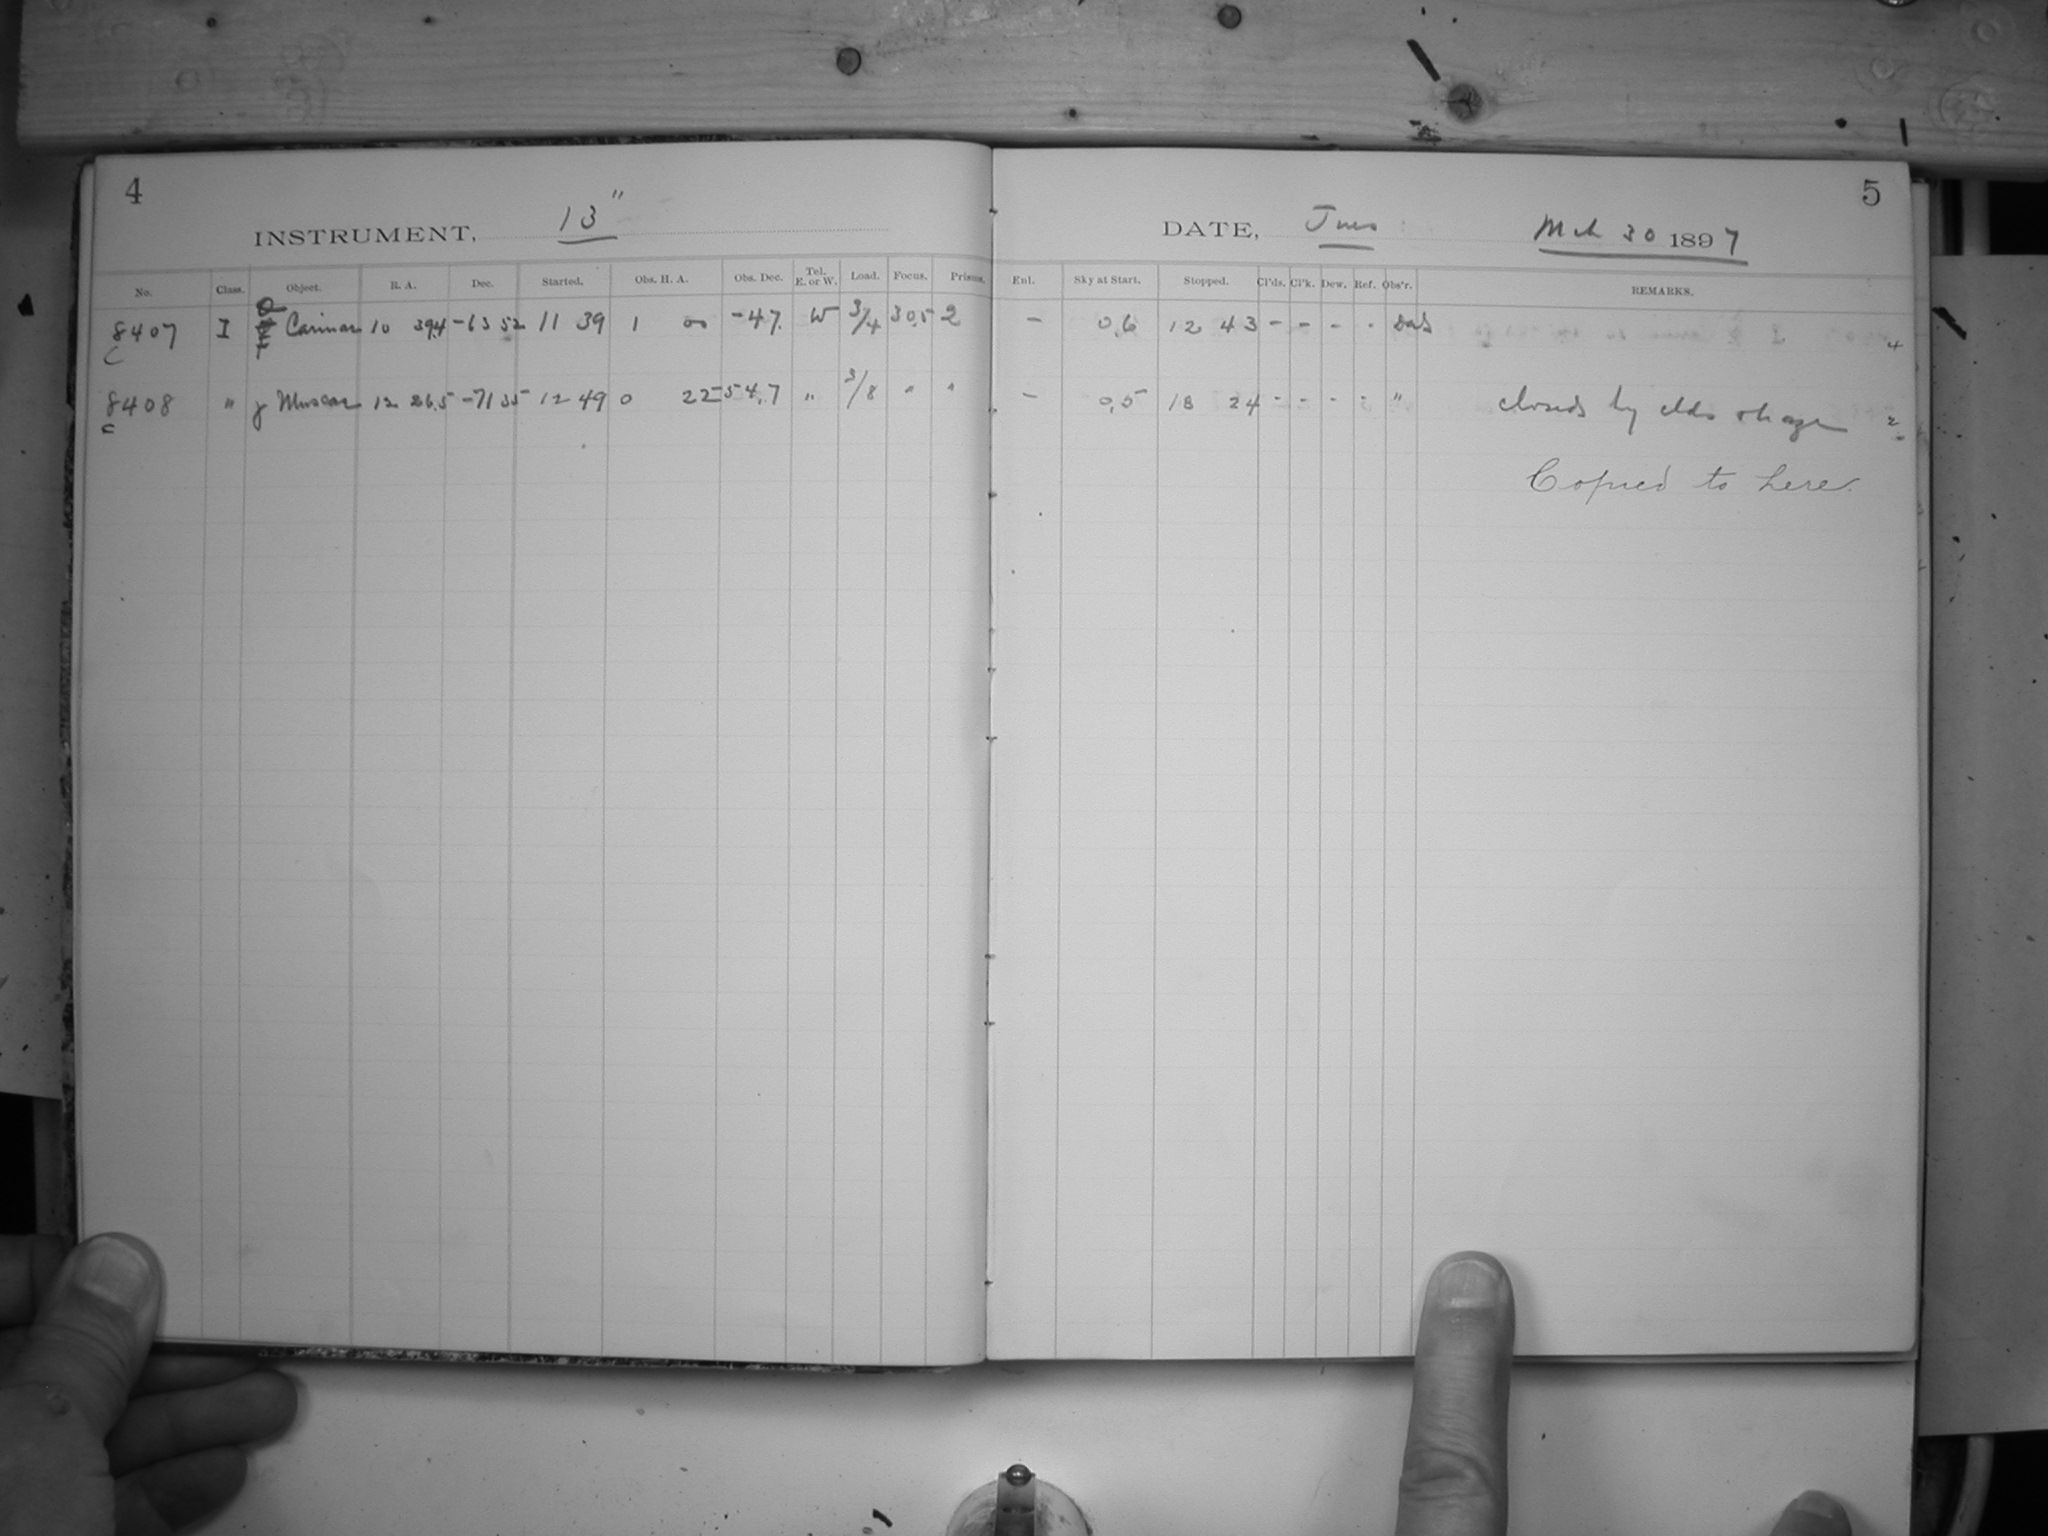 4
INSTRUMENT, 13"
No. Class. Object. R. A. Dec. Started. Obs. H. A. Obs. Dec. Tel. E. or W. Load. Focus. Prisms.
8407 I Carinae 10 39.4 -63 52 11 39 1 00 -47. W 3/4 30.5 2
C
8408 " γ Muscae 12 26.5 -71 35 12 49 0 22 54.7 " 3/8 " "
c
5
DATE, Tues Mch 30 1897
Enl. Sky at Start. Stopped. Cl'ds. Cl'k. Dew. Ref. Obs'r. REMARKS.
- 0.6 12 43 - - - - 4
- 0.5 13 24 - - - - " closed by clds & haze 2
Copied to here.